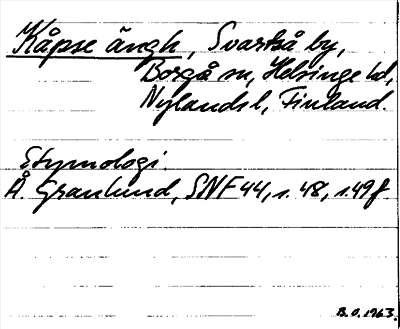 Kåpse ängh, Svartså by,
Borgå sn, Helsinge hd,
Nylands l, Finland.
Etymologi.
Å. Granlund, SNF 44, s. 48, s. 49 f
B.O. 1963.